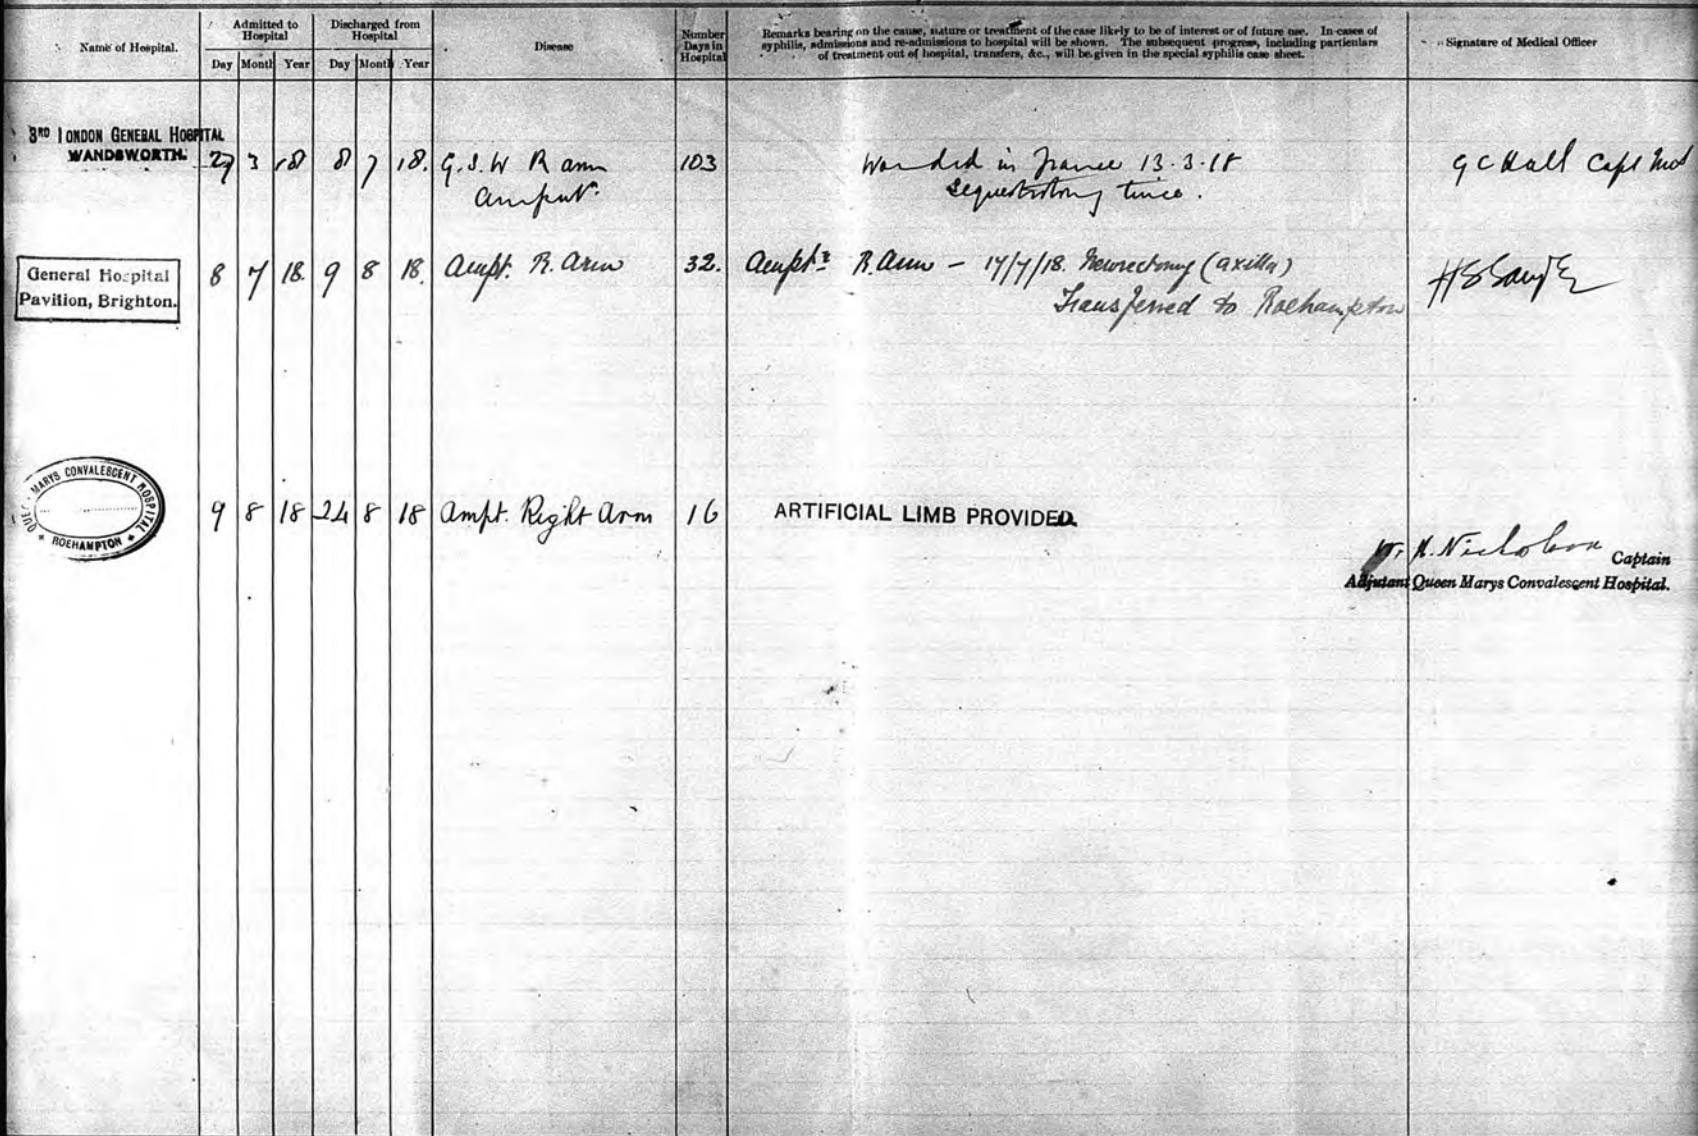 Name of Hospital.
Admitted to Hospital
Discharged from Hospital
Day Month Year Day Month Year
Disease
Number Days in Hospital
Remarks bearing on the cause, nature or treatment of the case likely to be of interest or of future use. In cases of
syphilis, admissions and re-admissions to hospital will be shown. The subsequent progress, including particulars
of treatment out of hospital, transfers, &c., will be given in the special syphilis case sheet.
Signature of Medical Officer
3RD LONDON GENERAL HOSPITAL
WANDSWORTH.
27 3 18 8 7 18. G.S.W R arm 103 Wounded in France 13.3.18 G C Hall Capt
Amput. Sequestrotomy twice.
General Hospital
Pavilion, Brighton.
8 7 18. 9 8 18. Ampt. R. Arm 32. Ampt R. Arm - 17/7/18. Neurectomy (axilla)
Transferred to Roehampton
QUEEN MARYS CONVALESCENT HOSPITAL
ROEHAMPTON
9 8 18 24 8 18 Ampt. Right Arm 16 ARTIFICIAL LIMB PROVIDED.
W. H. Nicholson Captain
Adjutant Queen Marys Convalescent Hospital.